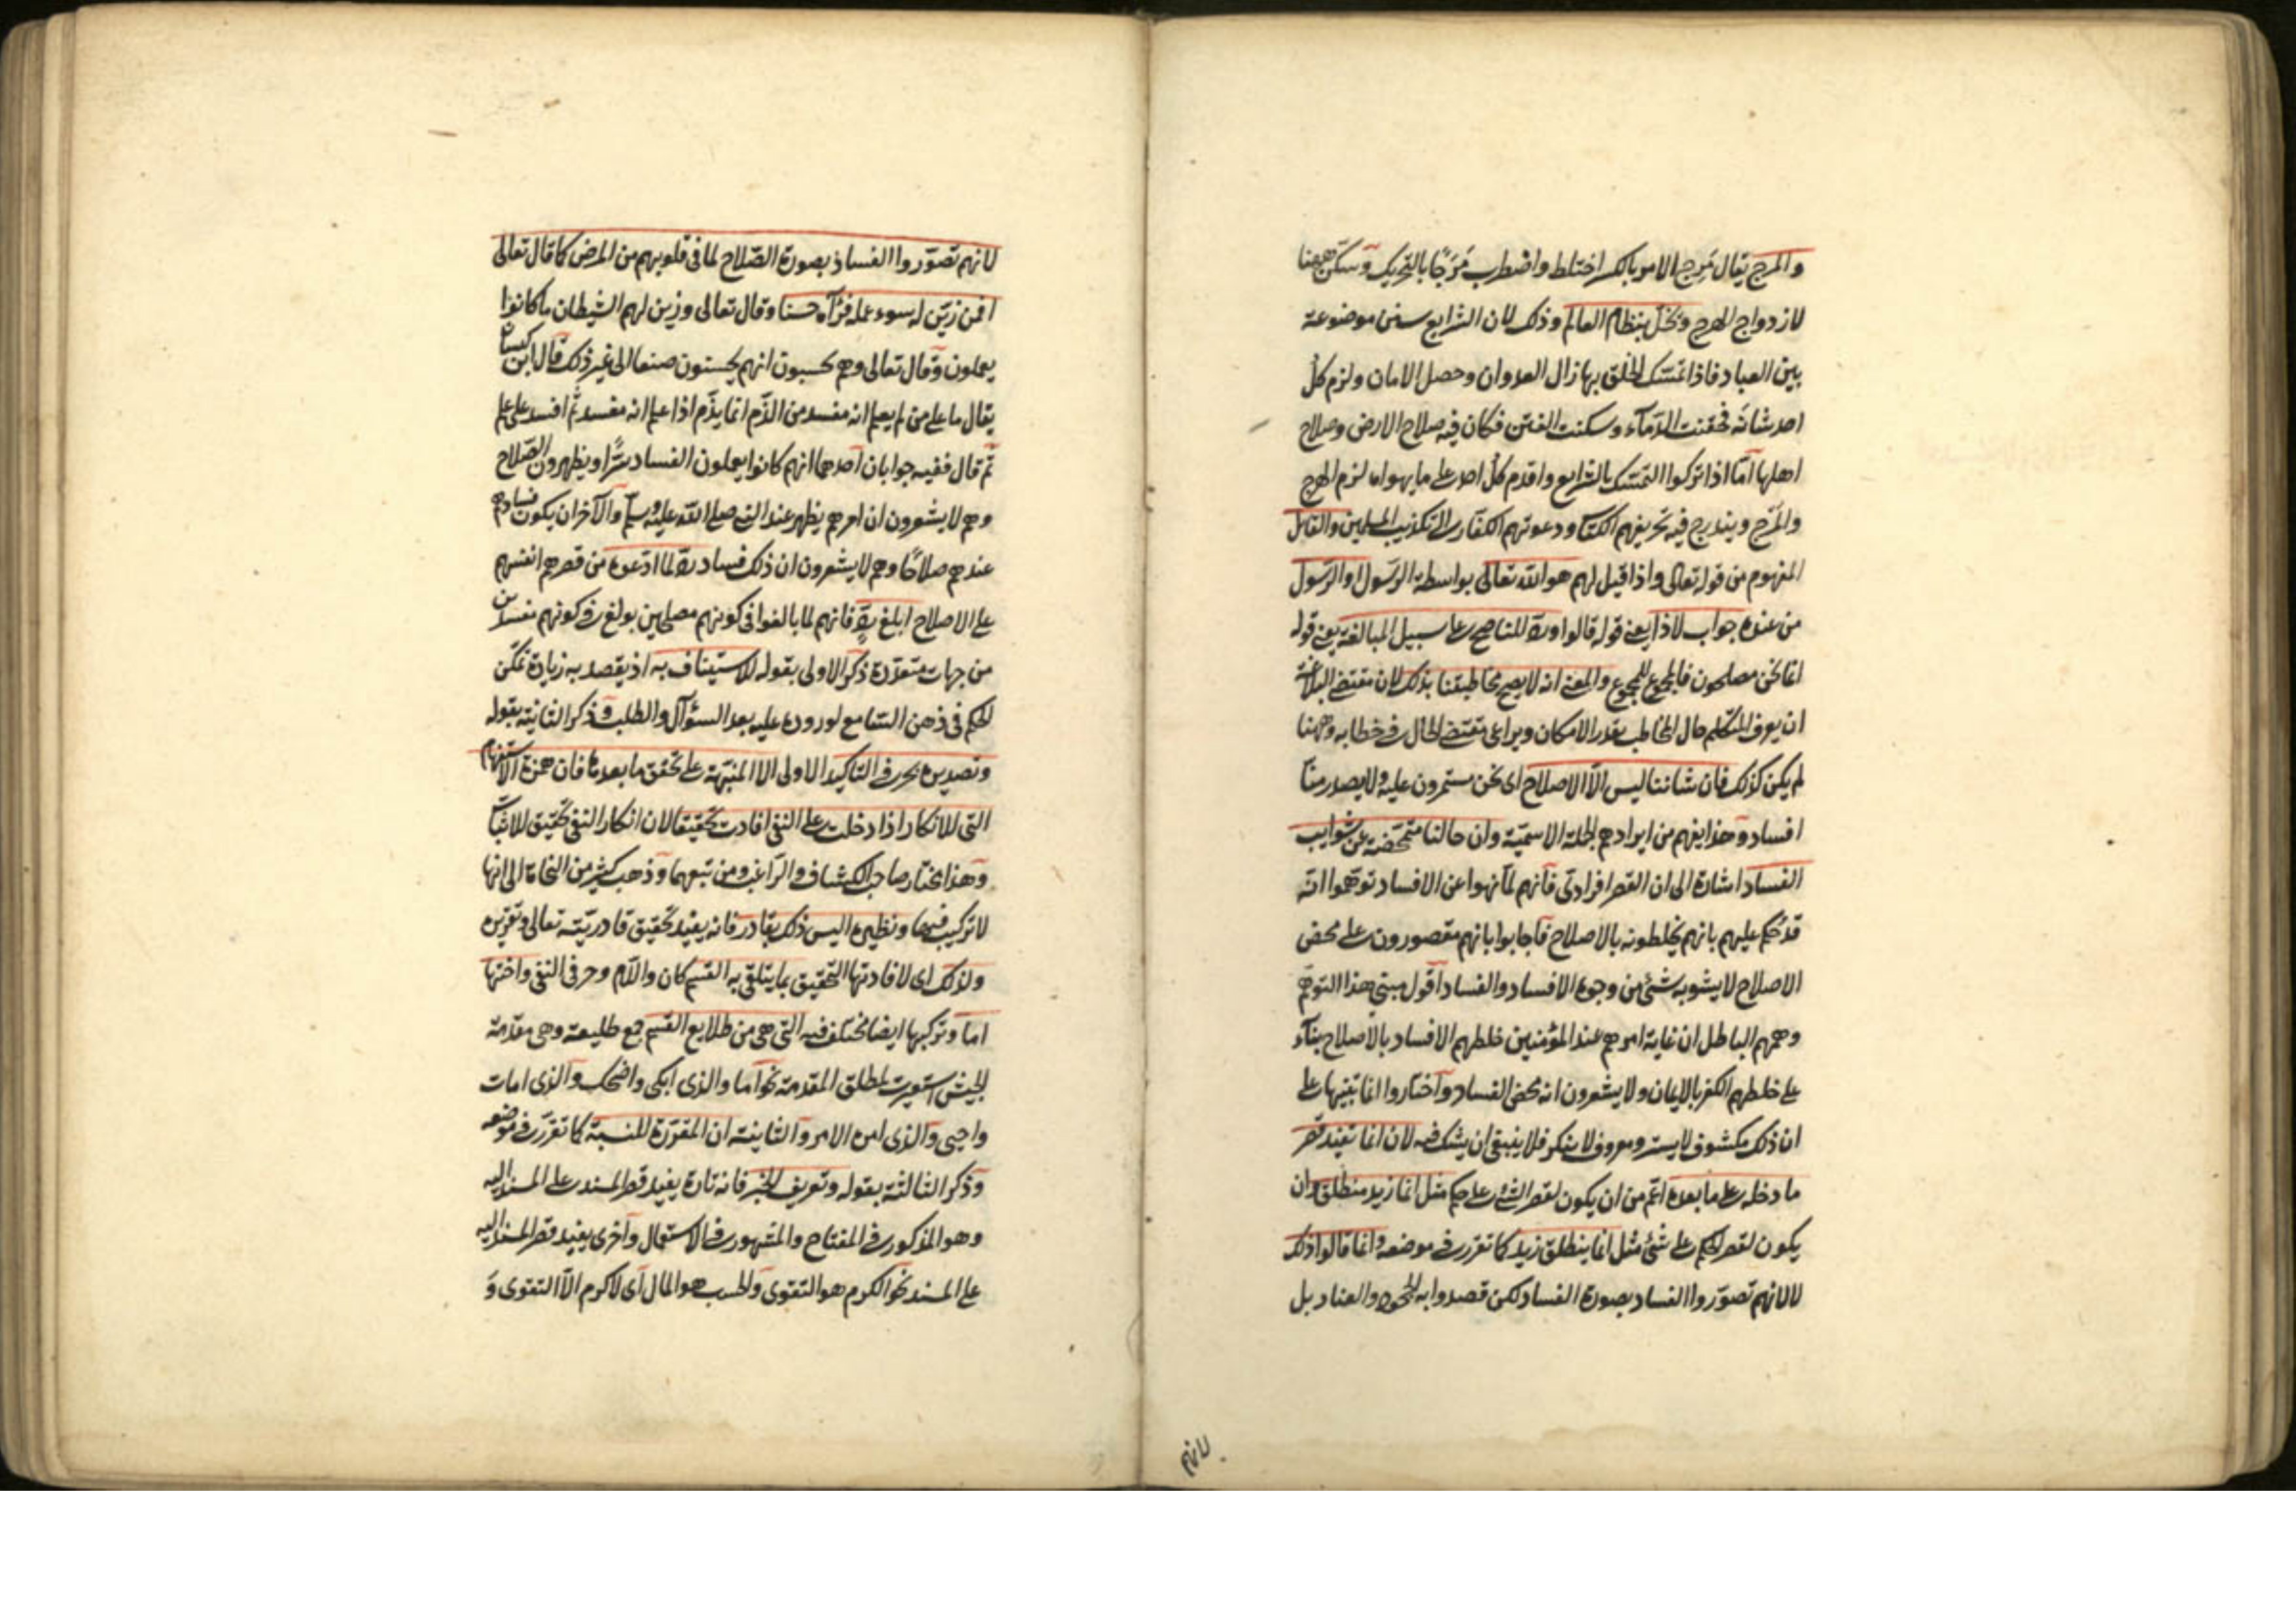 والمرج يقال مَرِج الامر بالكسر اختلط واضطرب مَرَجًا بالتحريك وسكّن ههنا
لازدواج الهرج ويخلّ بنظام العالم وذلك لان الشرايع سنن موضوعة
بين العباد فاذا تمسّك الخلق بها زال العدوان وحصل الامان ولزم كلّ
احد شانه فحقنت الدماء وسكنت الفتن فكان فيه صلاح الارض وصلاح
اهلها اما اذا تركوا التمسّك بالشرايع واقدم كلّ احد على ما يهواه لزم الهرج
والمرج ويندرج فيه تحريفهم الكتاب ودعوتهم الكفار الى تكذيب المسلمين والقائل
المفهوم من قوله تعالى واذا قيل لهم هو الله تعالى بواسطة الرسول او الرسول
من عنده جواب لاذا يعنى قوله قالوا وردّ للناصح على سبيل المبالغة يعنى قوله
انما نحن مصلحون فالمجموع للمجموع والمعنى انه لا يصح مخاطبتنا بذلك لان مقتضى البلاغة
ان يعرف المتكلم حال المخاطب بقدر الامكان ويراعى مقتضى الحال في خطابه وههنا
لم يكن كذلك فان شاننا ليس الّا الاصلاح اى نحن مستمرون عليه ولا يصدر منّا
افساد وهذا يفهم من ايرادهم الجملة الاسميّة وان حالنا متمحّضة عن شوايب
الفساد اشارة الى ان القصر افرادىّ فانهم لما نهوا عن الافساد توهّموا انه
قد حُكم عليهم بانهم يخلطونه بالاصلاح فاجابوا بانهم مقصورون على محض
الاصلاح لا يشوبه شئ من وجوه الافساد والفساد اقول مبنى هذا التوهّم
وهمهم الباطل ان غاية امرهم عند المؤمنين خلطهم الافساد بالاصلاح بناء
على خلطهم الكفر بالايمان ولا يشعرون انه محض الفساد واختاروا انما تنبيها على
ان ذلك مكشوف لا يستر ومعروف لا ينكر فلا ينبغى ان يشك فيه لان انما تفيد قصر
ما دخله على ما بعده اعمّ من ان يكون لقصر الشئ على حكم مثل انما زيد منطلق وان
يكون لقصر الحكم على شئ مثل انما ينطلق زيد كما تقرر في موضعه وانما قالوا ذلك
لا لانهم تصوّروا الفساد بصورة الفساد لكن قصدوا به الجحود والعناد بل
لانهم
لانهم تصوّروا الفساد بصورة الصّلاح لما فى قلوبهم من المرض كما قال تعالى
افمن زيّن له سوء عمله فرآه حسنا وقال تعالى وزين لهم الشيطان ما كانوا
يعملون وقال تعالى وهم يحسبون انهم يحسنون صنعا الى غير ذلك قال ابن كيسان
يقال ما على من لم يعلم انه مفسد من الذّم انما يذّم اذا علم انه مفسد ثم افسد على علم
ثم قال ففيه جوابان احدهما انهم كانوا يعملون الفساد سرًّا ويظهرون الصّلاح
وهم لا يشعرون ان امرهم يظهر عند النبى صلى الله عليه وسلم والآخر ان يكون فسادهم
عندهم صلاحًا وهم لا يشعرون ان ذلك فساد ردّ لما ادّعوه من قصرهم انفسهم
على الاصلاح ابلغ ردّ فانهم لما بالغوا فى كونهم مصلحين بولغ فى كونهم مفسدين
من جهات متعدّدة ذكر الاولى بقوله للاستيناف به اذ يقصد به زيادة تمكّن
الحكم فى ذهن السّامع لوروده عليه بعد السؤال والطلب وذكر الثانية بقوله
وتصديره بحرفى التاكيد الاولى الا المنبّهة على تحقق ما بعدها فان همزة الاستفهام
التى للانكار اذا دخلت على النفى افادت تحقيقا لان انكار النفى تحقيق للاثبات
وهذا مختار صاحب الكشاف والرّاغب ومن تبعهما وذهب كثير من النحاة الى انها
لا تركيب فيها ونظيره اليس ذلك بقادر فانه يفيد تحقيق قادريّته تعالى وتقريره
ولذلك اى لافادتها التحقيق بما يتلقى به القسم كان واللام وحرفى النفى واختها
اما وتركيبها ايضا مختلف فيه التى هى من طلايع القسم جمع طليعة وهى مقدمة
الجيش استعيرت لمطلق المقدمة نحو اما والذى ابكى واضحك والذى امات
واحيى والذى امره الامر والثانية ان المقرّرة للنسبة كما تقرّر فى موضعه
وذكر الثالثة بقوله وتعريف الخبر فانه تارة يفيد قصر المسند على المسند اليه
وهو المذكور فى المفتاح والمشهور فى الاستعمال واخرى يفيد قصر المسند اليه
على المسند نحو الكرم هو التقوى والحسب هو المال اى لا كرم الّا التقوى وَ